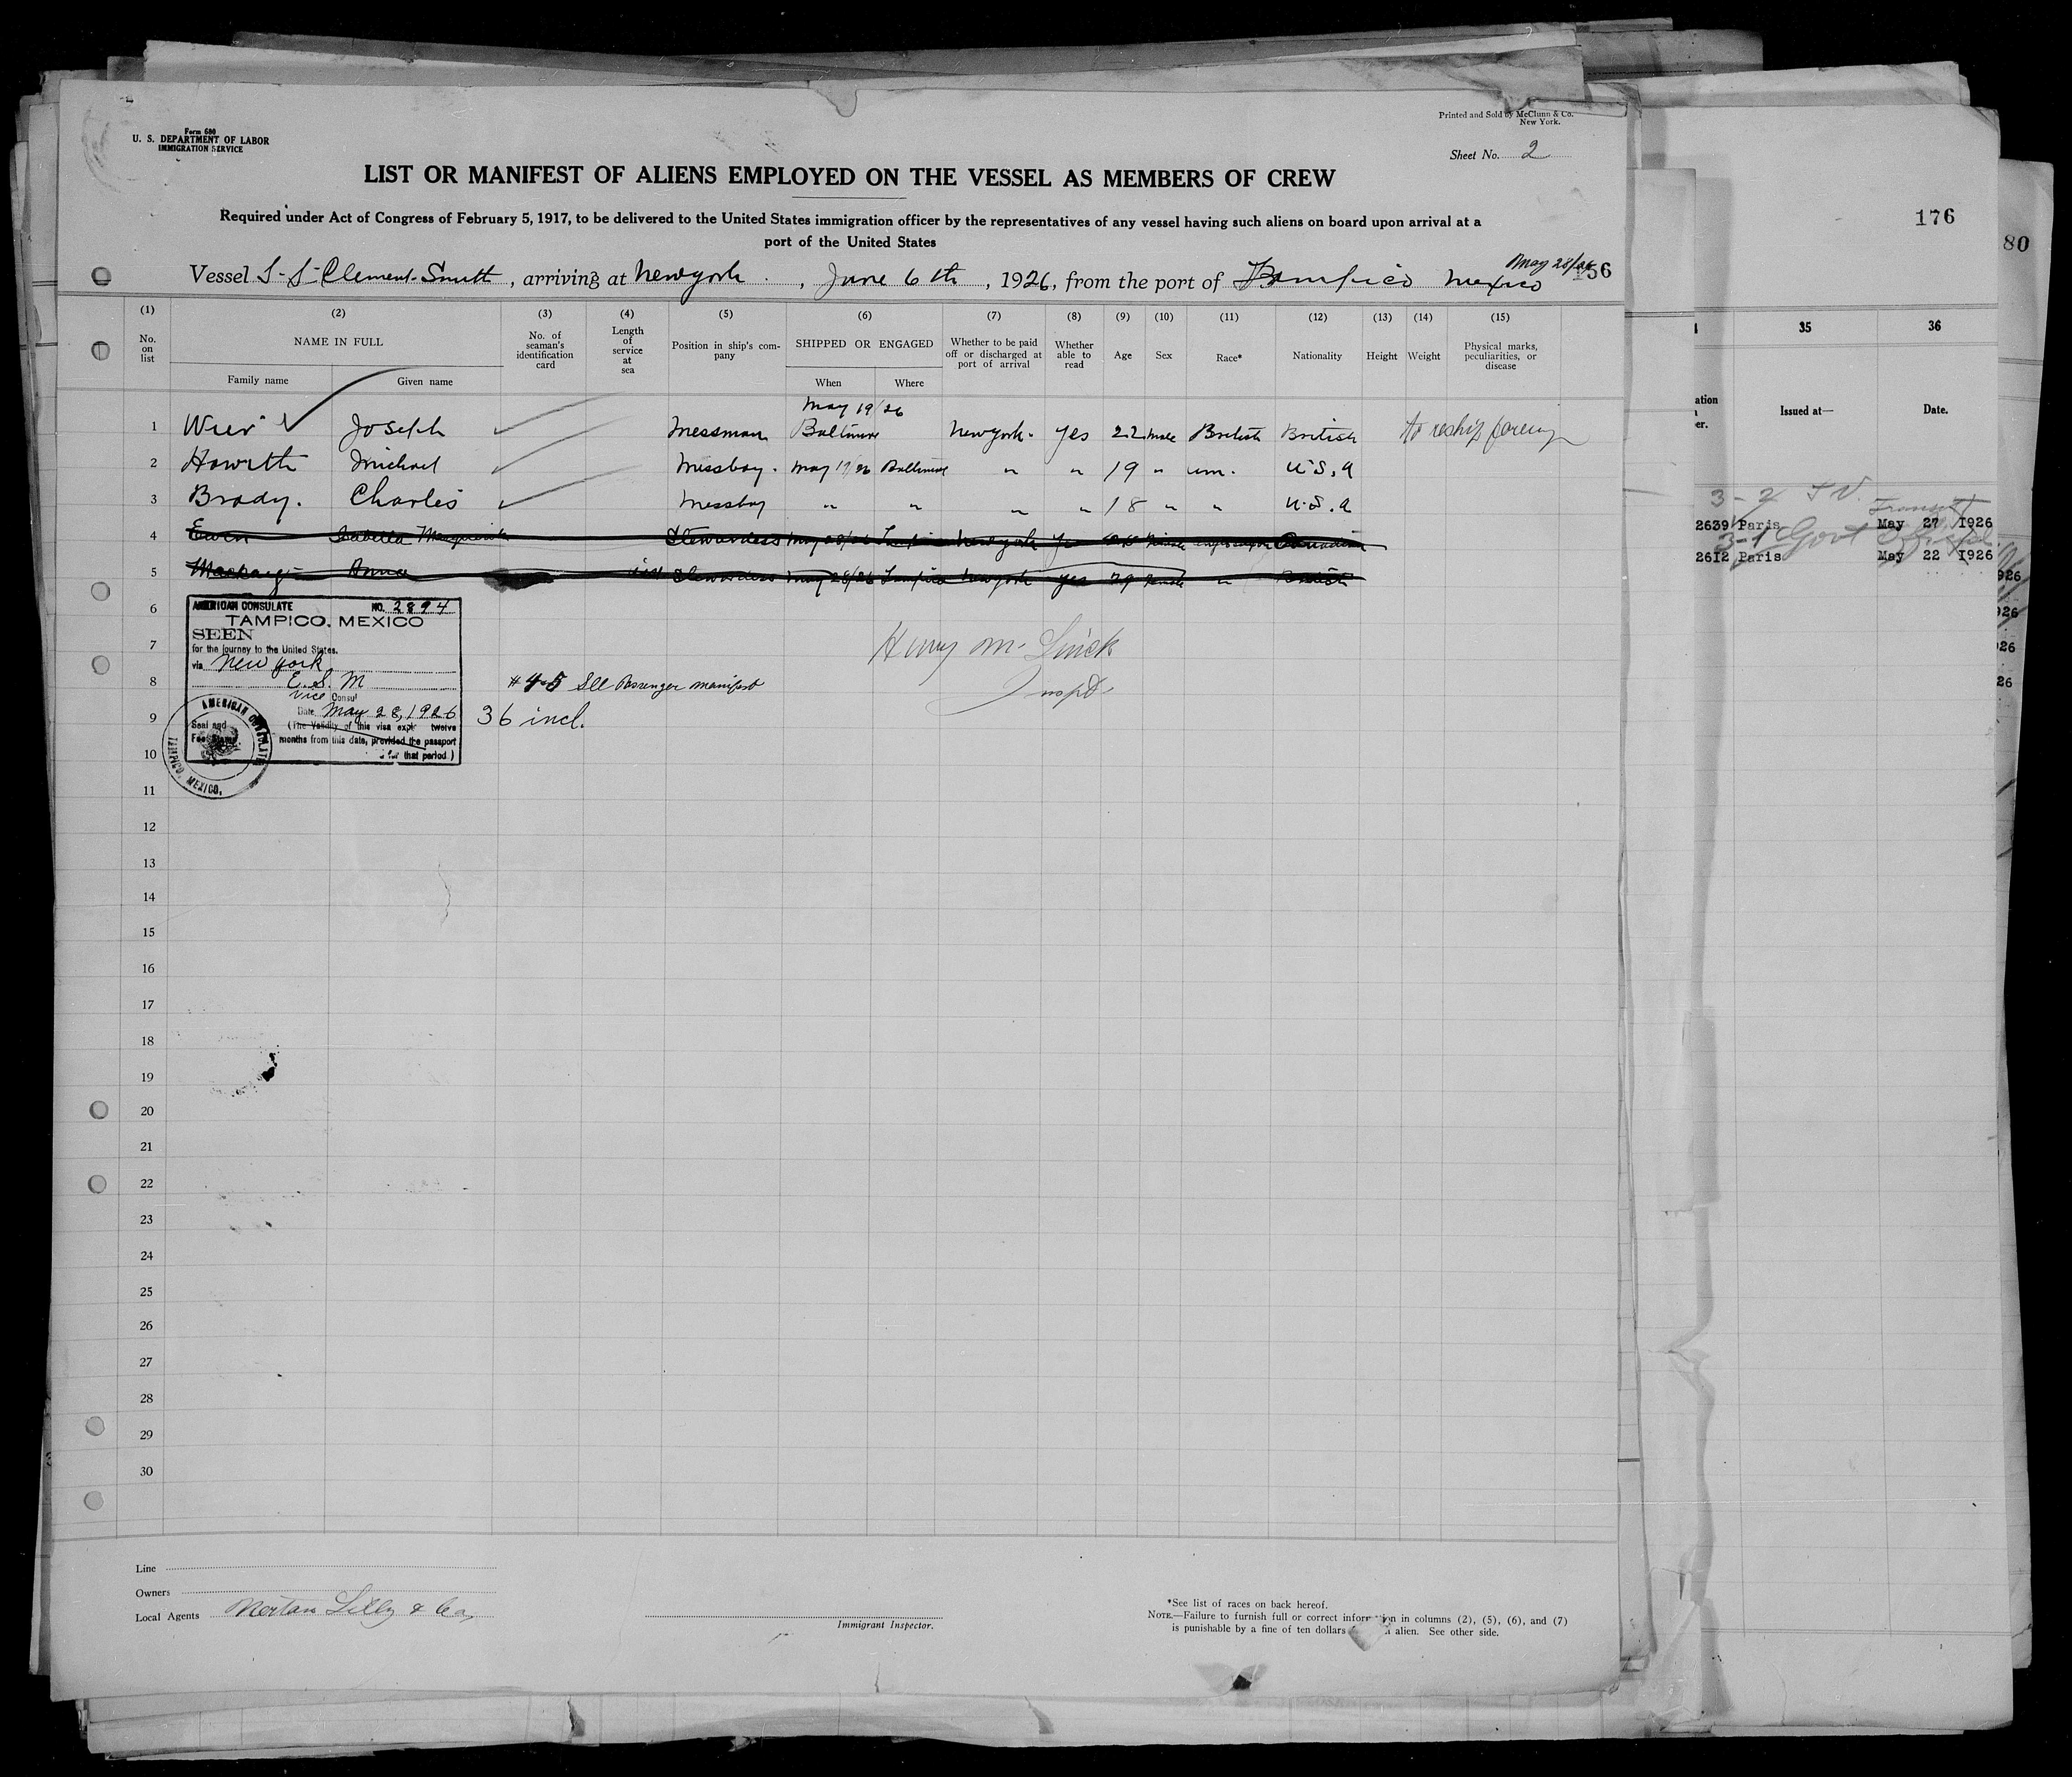 Form 680
U. S. DEPARTMENT OF LABOR
IMMIGRATION SERVICE
Printed and Sold by McClunn & Co.
New York.
Sheet No. 2
LIST OR MANIFEST OF ALIENS EMPLOYED ON THE VESSEL AS MEMBERS OF CREW
Required under Act of Congress of February 5, 1917, to be delivered to the United States immigration officer by the representatives of any vessel having such aliens on board upon arrival at a
port of the United States
Vessel S-S-Clement-Smith, arriving at New york, June 6th, 1926, from the port of Tampico Mexico May 28/26
56
(1) (2) (3) (4) (5) (6) (7) (8) (9) (10) (11) (12) (13) (14) (15)
No. on list
NAME IN FULL
Family name
Given name
No. of seaman's identification card
Length of service at sea
Position in ship's company
SHIPPED OR ENGAGED
When
Where
Whether to be paid off or discharged at port of arrival
Whether able to read
Age
Sex
Race*
Nationality
Height
Weight
Physical marks, peculiarities, or disease
May 19/26
1 Weir Joseph Messman Baltimore New york. yes 22 male British British to reship foreign
2 Howith Michael Messboy. May 19/26 Baltimore " " 19 " um. U.S.A
3 Brady. Charles Messboy " " " " 18 " " U.S.A
4 Ewen Isabella Stewardess May 28/26 Tampico New york yes Female Canadian
5 Anna Stewardess May 28/26 Tampico New york yes 29 Female " British
6
7
8
9
10
11
12
13
14
15
16
17
18
19
20
21
22
23
24
25
26
27
28
29
30
AMERICAN CONSULATE NO. 2894
TAMPICO, MEXICO
SEEN
for the journey to the United States.
via New York
E. S. M
Vice Consul
Date May 28, 1926
Seal and
Fee Stamp
(The Validity of this visa expires twelve
months from this date, provided the passport
for that period)
AMERICAN CONSULATE
TAMPICO, MEXICO.
#4-5 See Passenger manifest
36 incl.
Inspt.
Line
Owners
Local Agents Lilly & Co,
Immigrant Inspector.
*See list of races on back hereof.
NOTE.—Failure to furnish full or correct information in columns (2), (5), (6), and (7)
is punishable by a fine of ten dollars alien. See other side.
176
80
35 36
Issued at—
Date.
3-2 T V.
Transit
2639 Paris May 27 1926
3-1 Govt Official
2612 Paris May 22 1926
926
926
26
26